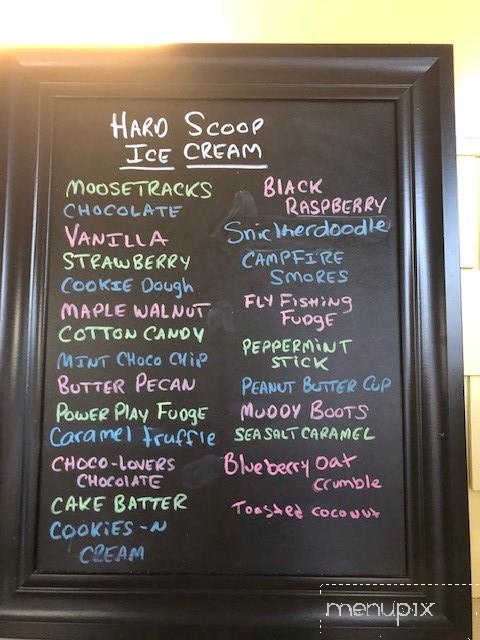 HARD SCOOP
ICE CREAM
MOOSETRACKS
CHOCOLATE
VANILLA
STRAWBERRY
COOKIE Dough
MAPLE WALNUT
COTTON CANDY
MINT CHOCO CHIP
BUTTER PECAN
POWER PLAY FUDGE
Caramel Truffle
CHOCO-LOVERS
CHOCOLATE
CAKE BATTER
COOKIES-N
CREAM
BLACK
RASPBERRY
Snickerdoodle
CAMPFIRE
SMORES
FLY FISHING
FUDGE
PEPPERMINT
STICK
PEANUT BUTTER CUP
MUDDY BOOTS
SEA SALT CARAMEL
Blueberry Oat
crumble
Toasted coconut
menupix